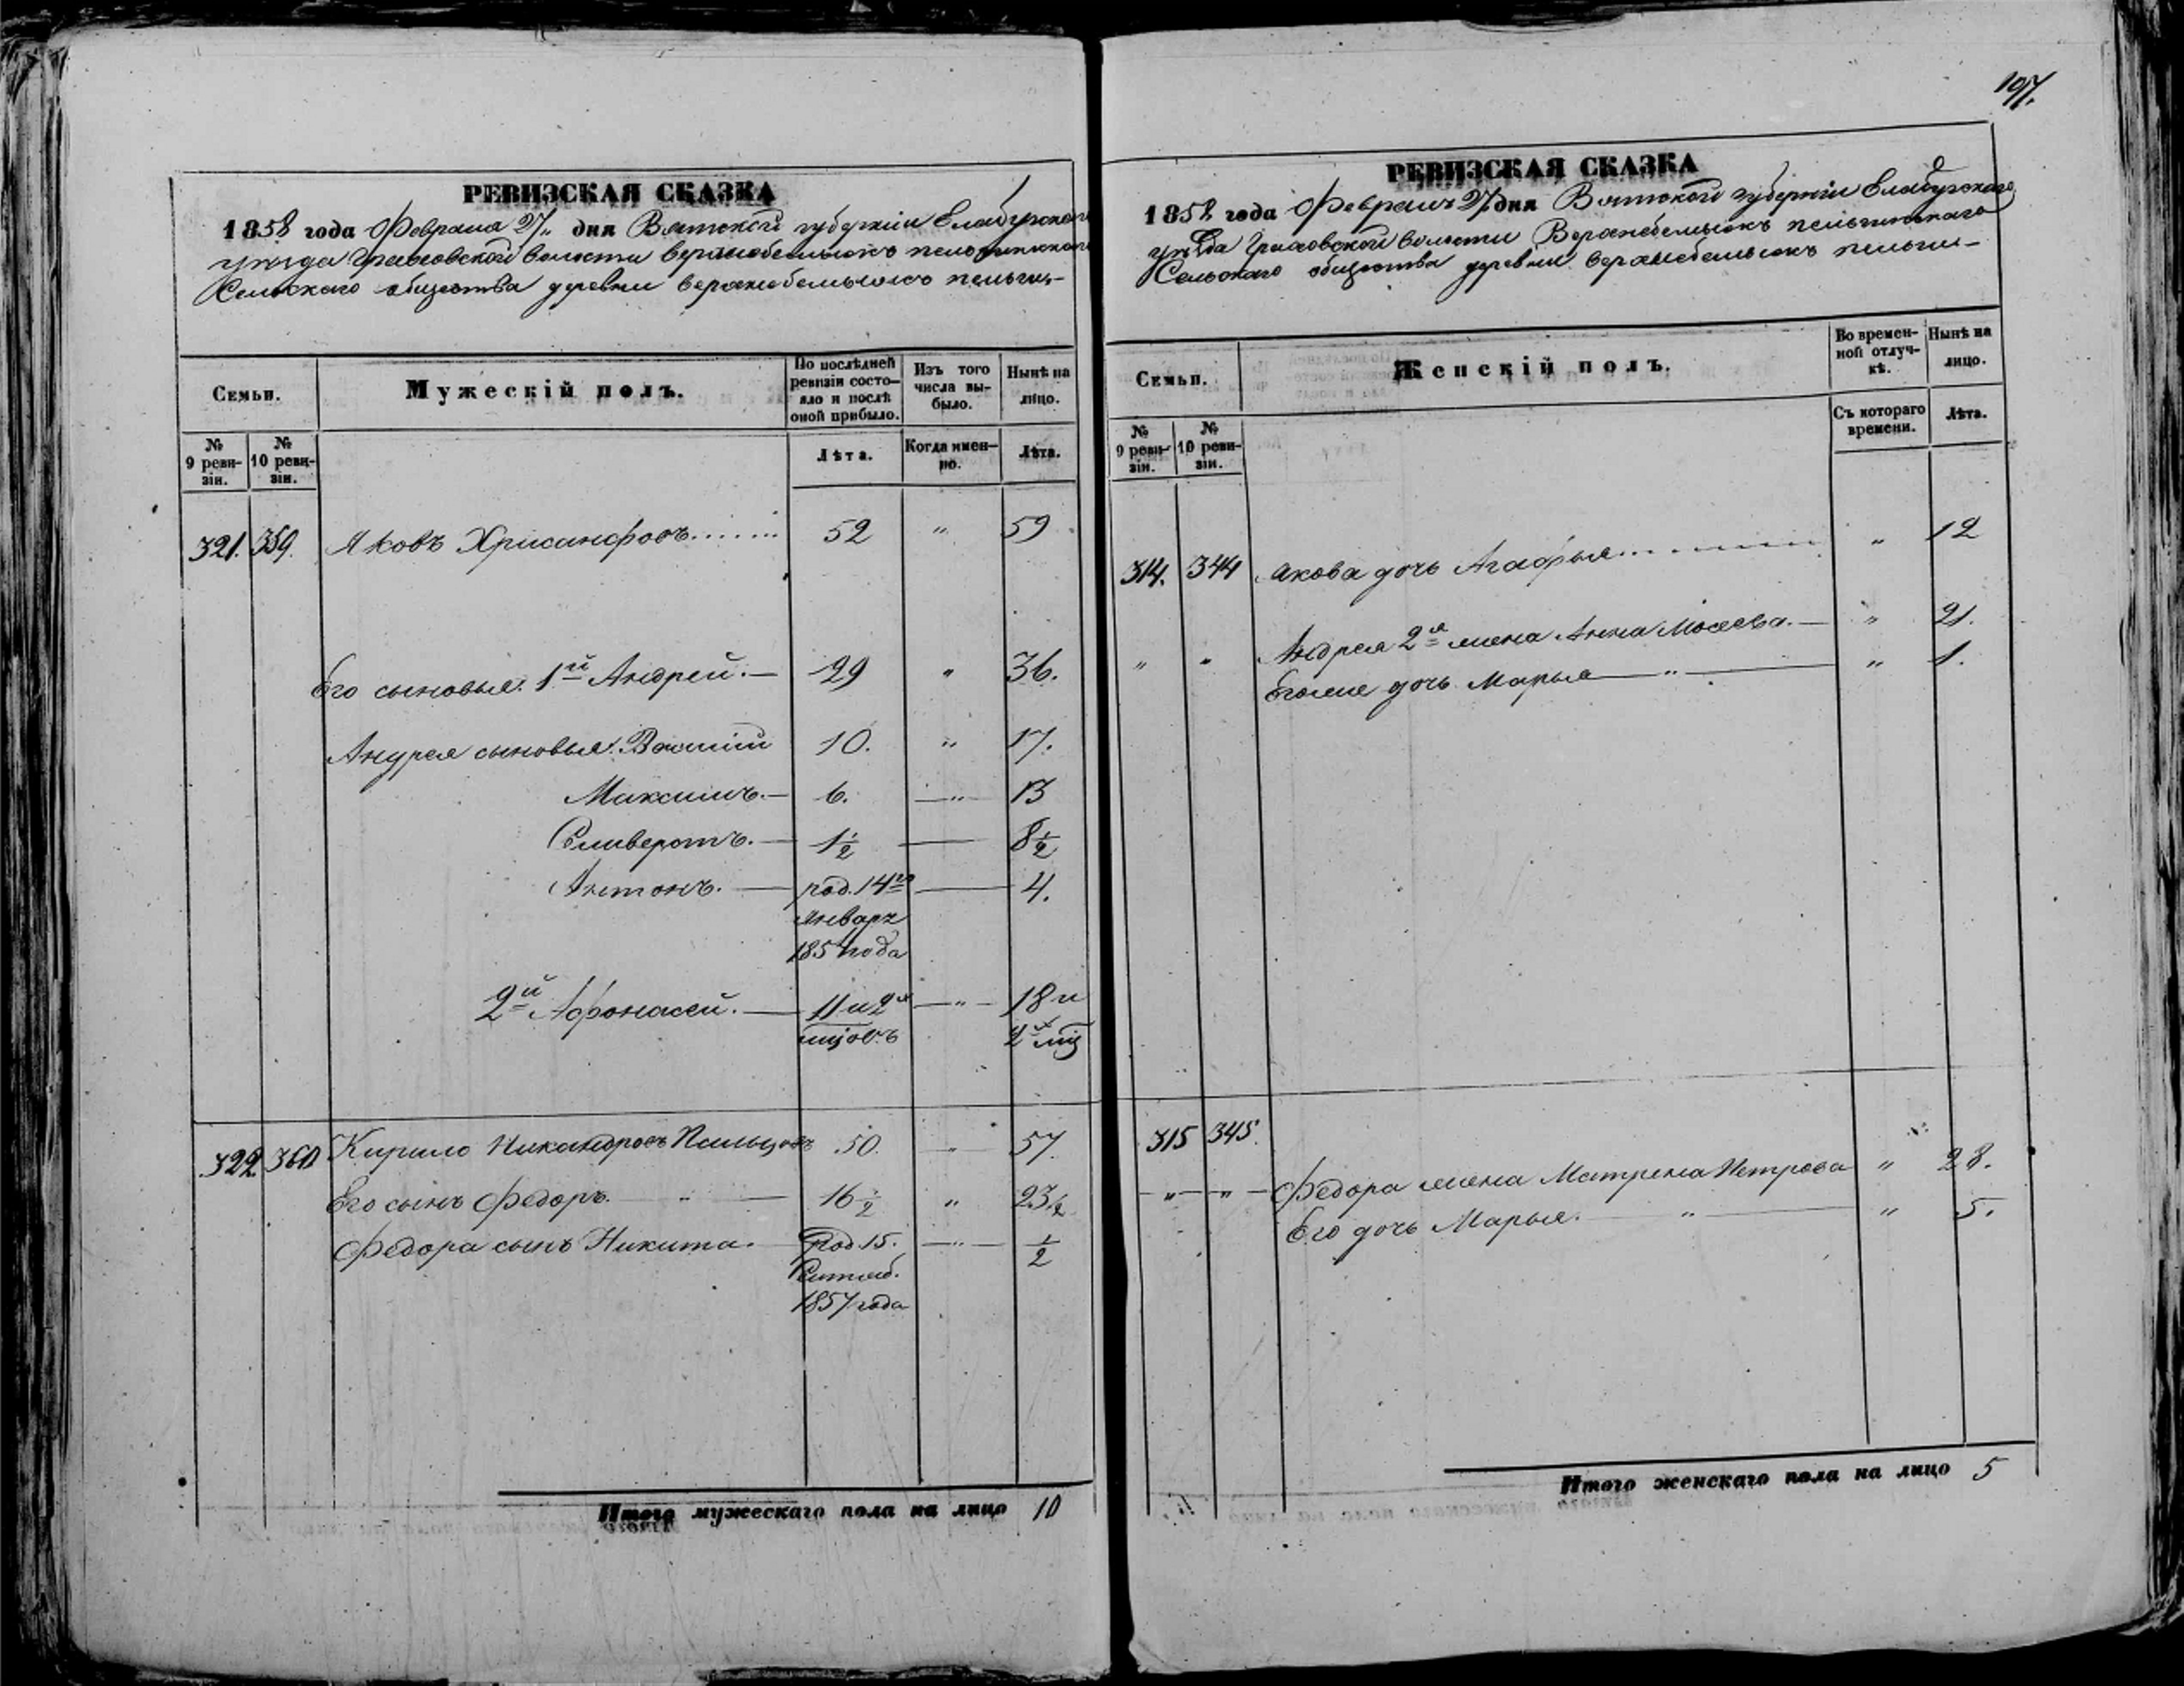 РЕВИЗСКАЯ СКАЗКА
1858 года Февраля 27 дня Вятской губернiи Елабужскаго
уѣзда Граховской волости
Сельскаго общества деревни
Семьи.
Мужескiй полъ.
По послѣдней ревизiи состо-
яло и послѣ оной прибыло.
Изъ того числа вы-
было.
Нынѣ на лицо.
№ 9 реви-
зiи.
№ 10 реви-
зiи.
Лѣта.
Когда имен-
но.
Лѣта.
321. 359. Яковъ Хрисанфовъ....... 52 " 59
Его сыновья: 1й Андрей.— 29 " 36.
Андрея сыновья: Василiй 10. " 17.
Максимъ.— 6. —"— 13
Селиверстъ.— 1½ — 8½
Антонъ.— род. 14го — 4.
Января
185 года
2й Афонасей.— 11 и 2х —"— 18 и
мцовъ 2х мц
322. 360 Кирило Никандровъ Пальцовъ 50. " 57.
Его сынъ Федоръ. " — 16½ " 23½
Федора сынъ Никита. Род 15. —"— ½
Сентяб.
1857 года
Итого мужескаго пола на лицо 10
197.
РЕВИЗСКАЯ СКАЗКА
1858 года Февраля 27 дня Вятской губернiи Елабужскаго
уѣзда Граховской волости
Сельскаго общества деревни
Семьи.
Женскiй полъ.
Во времен-
ной отлуч-
кѣ.
Нынѣ на лицо.
№ 9 реви-
зiи.
№ 10 реви-
зiи.
Съ котораго времени.
Лѣта.
314. 344 Якова дочь Агафья........ " 12
" " Андрея 2я жена Анна Мосеева.— " 21.
Егоже дочь Марья —"— " 1.
315 345.
—"— "— Федора жена Матрена Петрова " 28.
Его дочь Марья. —"— " 5.
Итого женскаго пола на лицо 5